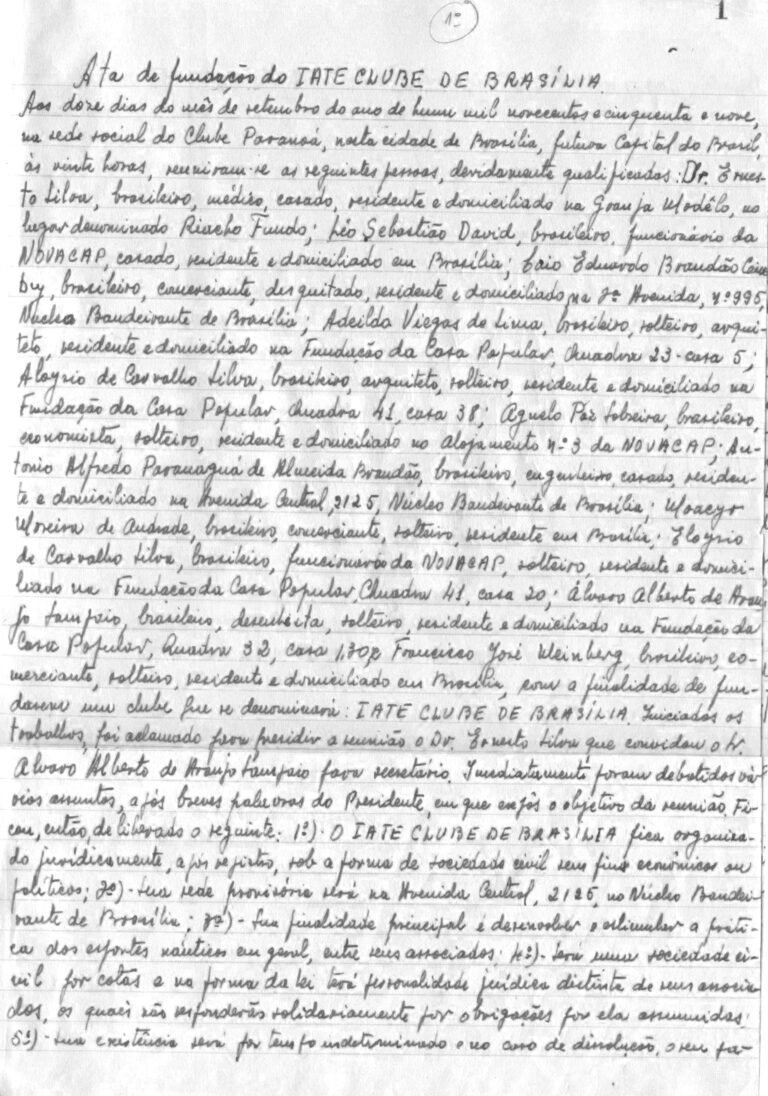 1º
1
Ata de fundação do IATE CLUBE DE BRASÍLIA
Aos doze dias do mês de setembro do ano de hum mil novecentos e cinquenta e nove,
na sede social do Clube Paranoá, nesta cidade de Brasília, futura Capital do Brasil,
às vinte horas, reuniram-se as seguintes pessoas, devidamente qualificadas: Dr. Ernes-
to Silva, brasileiro, médico, casado, residente e domiciliado na Granja Modêlo, no
lugar denominado Riacho Fundo; Léo Sebastião David, brasileiro, funcionário da
NOVACAP, casado, residente e domiciliado em Brasília; Caio Eduardo Brandão
by, brasileiro, comerciante, desquitado, residente e domiciliado na 3ª Avenida, nº 995,
Núcleo Bandeirante de Brasília; Adeildo Viegas de Lima, brasileiro, solteiro, arqui-
teto, residente e domiciliado na Fundação da Casa Popular, Quadra 23-casa 5;
Aloysio de Carvalho Silva, brasileiro, arquiteto, solteiro, residente e domiciliado na
Fundação da Casa Popular, Quadra 41, casa 38; Agnelo Paz Sobreira, brasileiro,
economista, solteiro, residente e domiciliado no alojamento nº 3 da NOVACAP; An-
tonio Alfredo Paranaguá de Almeida Brandão, brasileiro, engenheiro, casado, residen-
te e domiciliado na Avenida Central, 2125, Núcleo Bandeirante de Brasília; Moacyr
Moreira de Andrade, brasileiro, comerciante, solteiro, residente em Brasília; Eloysio
de Carvalho Silva, brasileiro, funcionário da NOVACAP, solteiro, residente e domici-
liado na Fundação da Casa Popular, Quadra 41, casa 20; Álvaro Alberto de Arau-
jo Sampaio, brasileiro, desenhista, solteiro, residente e domiciliado na Fundação da
Casa Popular, Quadra 32, casa Francisco José Kleinberg, brasileiro, co-
merciante, solteiro, residente e domiciliado em Brasília, com a finalidade de fun-
darem um clube que se denominará: IATE CLUBE DE BRASÍLIA. Iniciados os
trabalhos, foi aclamado para presidir a reunião o Dr. Ernesto Silva que convidou o Sr.
Alvaro Alberto de Araujo Sampaio para secretário. Imediatamente foram debatidos vá-
rios assuntos, após breves palavras do Presidente, em que expôs o objetivo da reunião. Fi-
cou, então, deliberado o seguinte: 1º)- O IATE CLUBE DE BRASÍLIA fica organiza-
do jurídicamente, após registro, sob a forma de sociedade civil sem fins econômicos ou
políticos; 2º)- Sua sede provisória será na Avenida Central, 2125, no Núcleo Bandei-
rante de Brasília; 3º)- Sua finalidade principal é desenvolver e estimular a práti-
ca dos esportes náuticos em geral, entre seus associados; 4º)- Será uma sociedade ci-
vil por cotas e na forma da lei terá personalidade jurídica distinta de seus associa-
dos, os quais não responderão solidariamente por obrigações por ela assumidas;
5º)- Sua existência será por tempo indeterminado e no caso de dissolução, o seu pa-